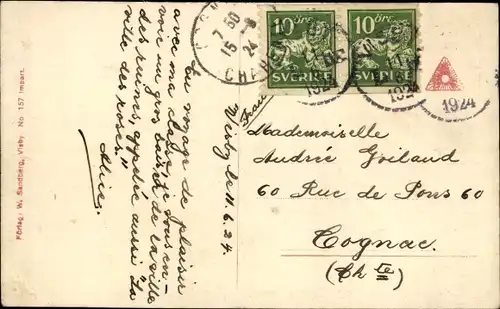 Förlag: W. Sandberg, Visby. No 157 Import.
Visby le 11.6.24.
En voyage de plaisir
avec ma classe, je vous en-
voie un gros baiser de la ville
des ruines, appelée aussi "la
ville des roses."
Alice.
10 öre 10 öre
SVERIGE SVERIGE
7 50
15 6
24
CHERBOURG
1924
Mademoiselle
Andrée Goiland
60 Rue de Pons 60
Cognac.
(Ch te)